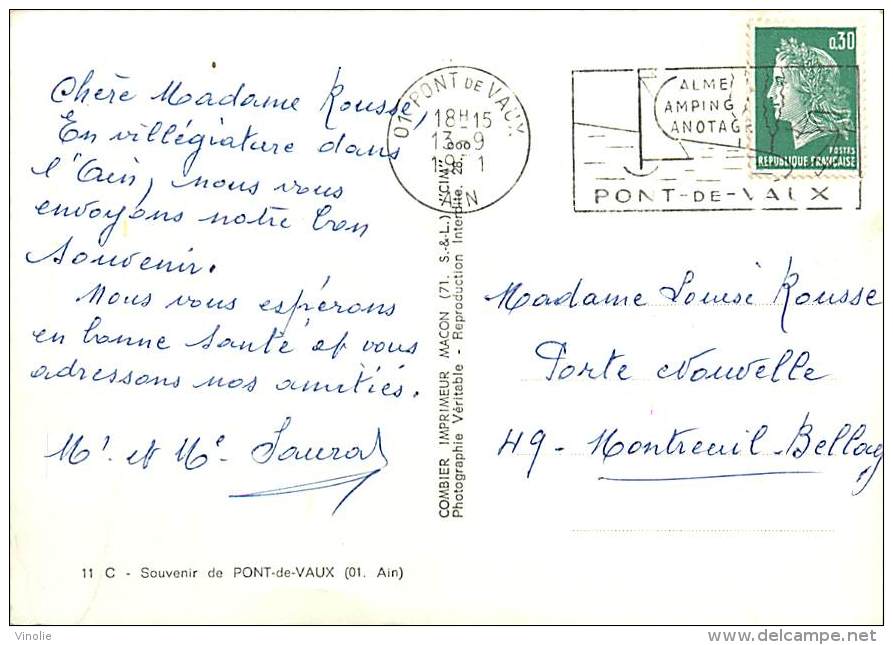 Chère Madame Rousse,
En villégiature dans
l'Ain, nous vous
envoyons notre bon
souvenir.
Nous vous espérons
en bonne santé et vous
adressons nos amitiés.
Mr et Me
11 C - Souvenir de PONT-de-VAUX (01. Ain)
COMBIER IMPRIMEUR MACON (71. S.-&-L.)
Photographie Véritable - Reproduction Interdite.
01 PONT DE VAUX
18H15
13-9
AIN
ALME
AMPING
ANOTAGE
PONT-DE-VAUX
0,30
POSTES
REPUBLIQUE FRANÇAISE
Madame Louise Rousse
Porte Nouvelle
49 - Montreuil-Bellay
Vinolie
delcampe.net